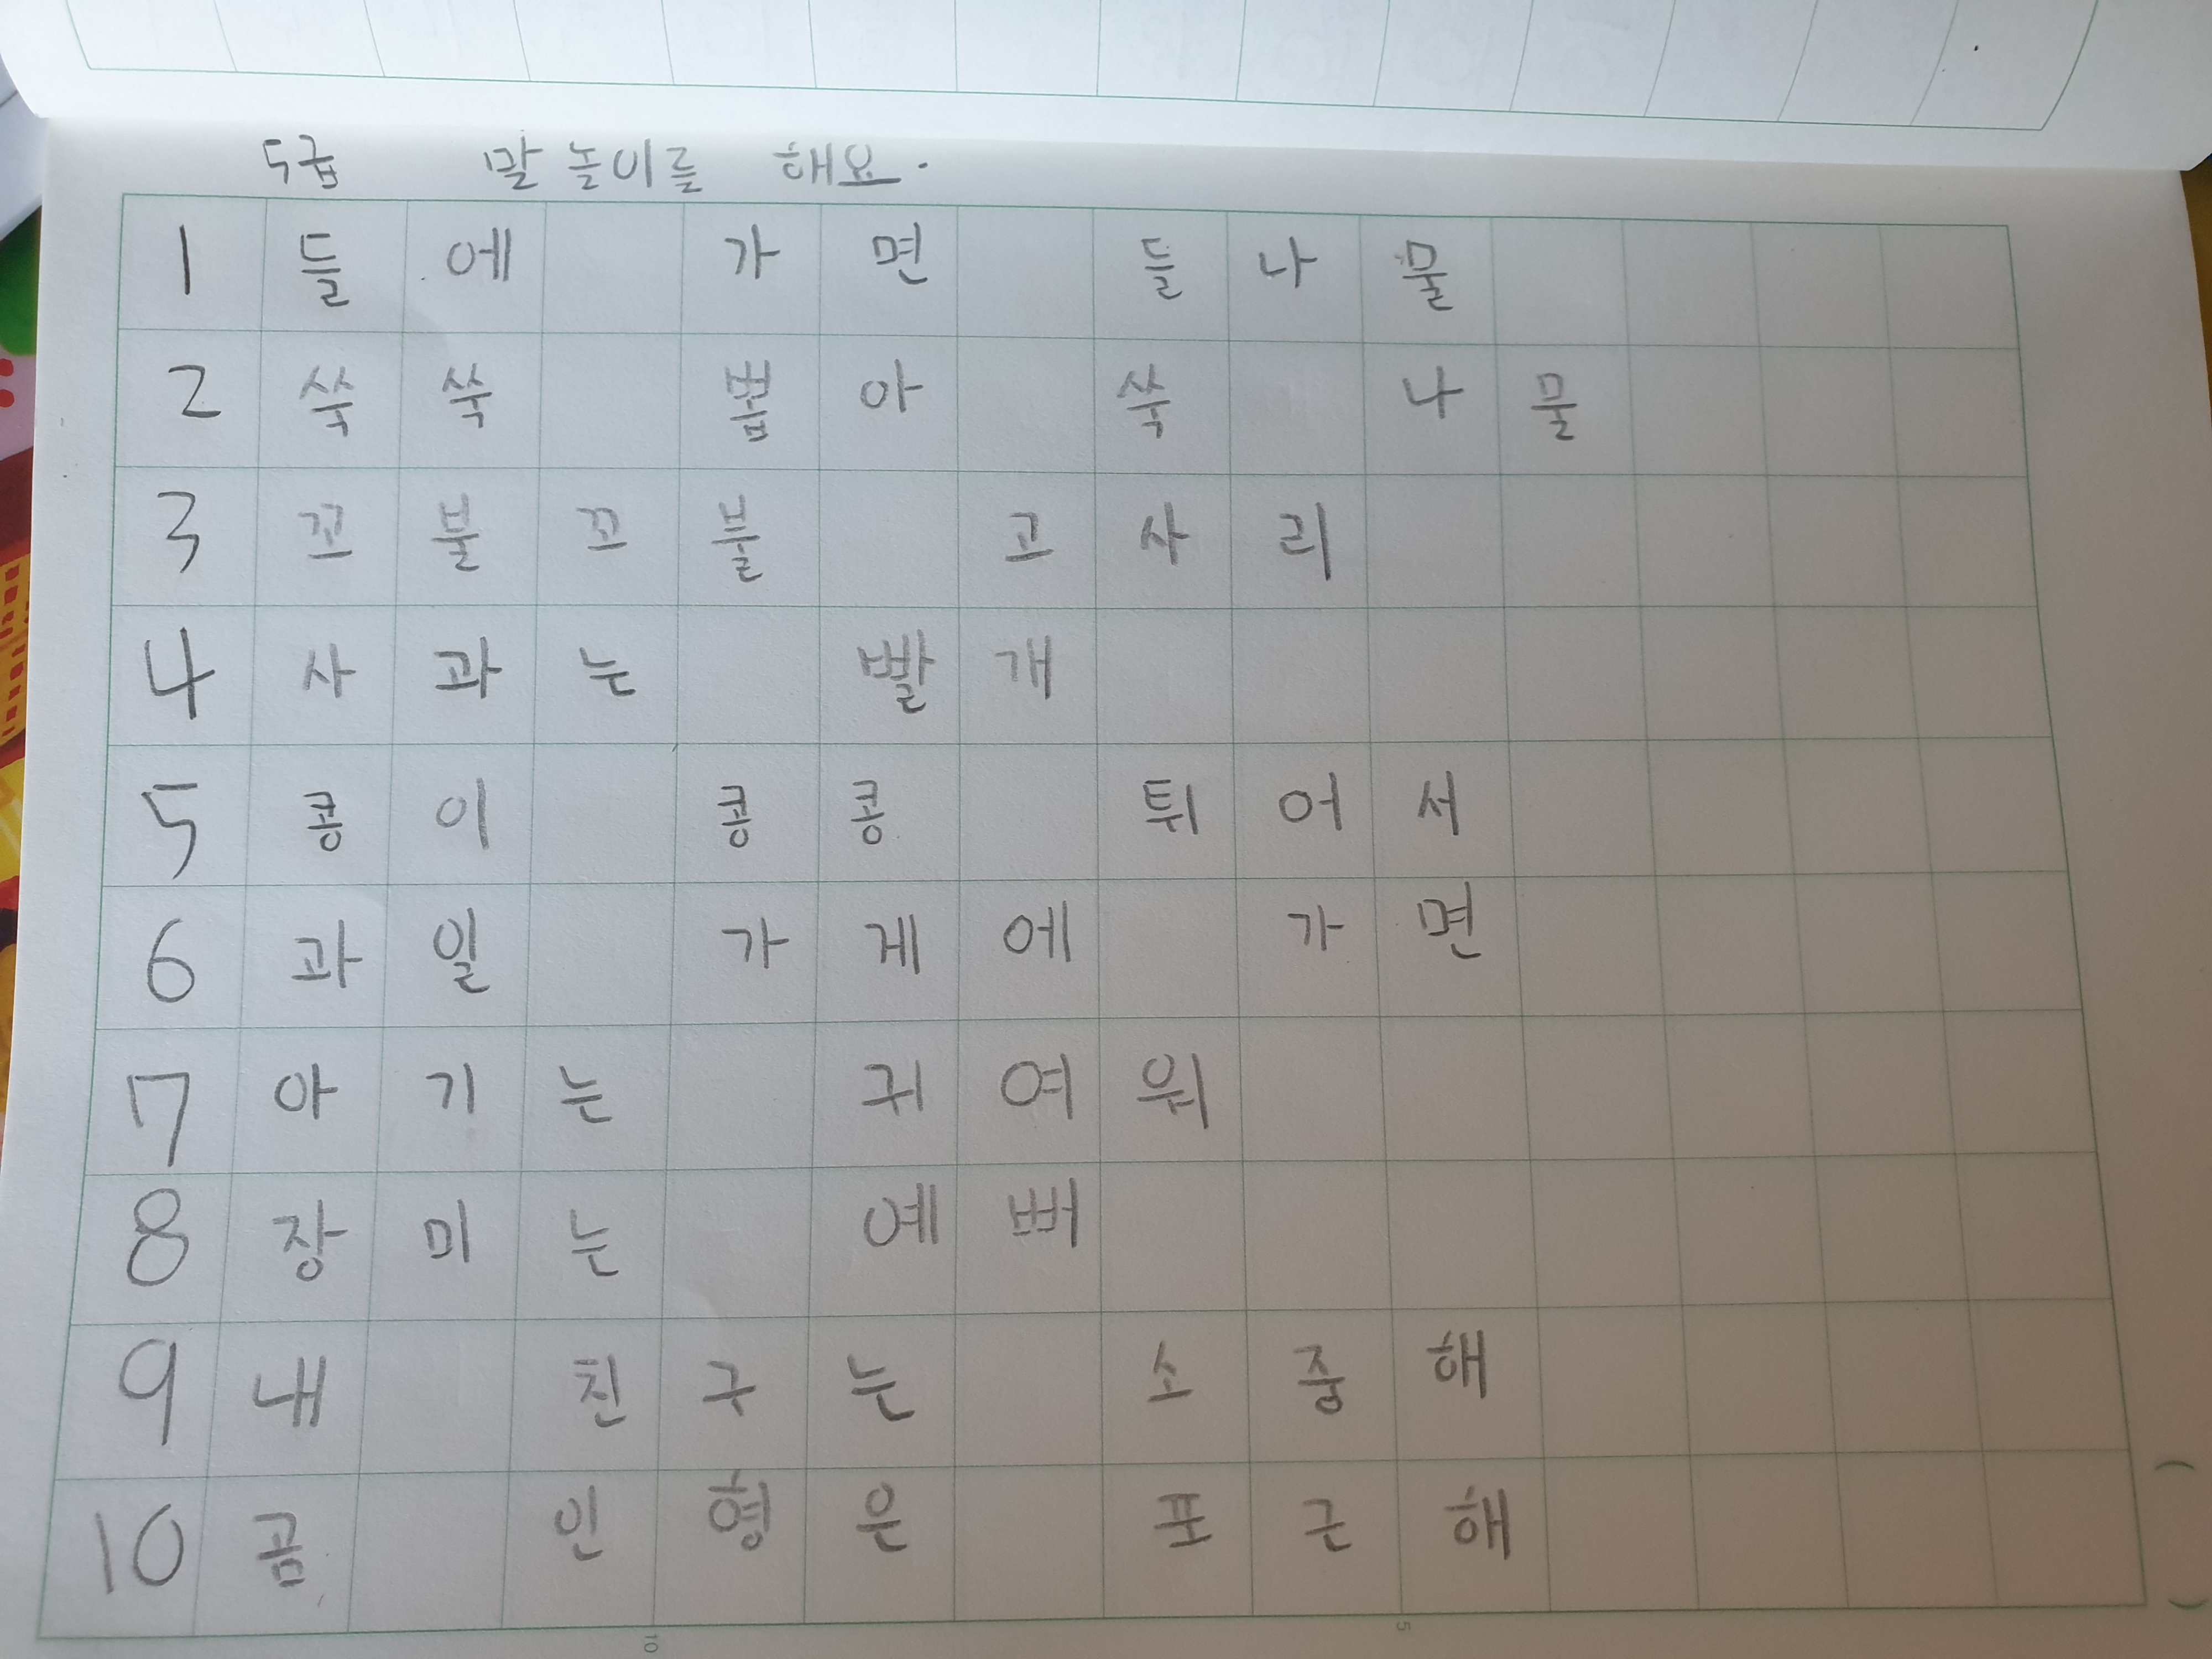 5급 말놀이를 해요.
1 들에 가면 들나물
2 쑥쑥 뽑아 쑥 나물
3 꼬불꼬불 고사리
4 사과는 빨개
5 콩이 콩콩 튀어서
6 과일 가게에 가면
7 아기는 귀여워
8 장미는 예뻐
9 내 친구는 소중해
10 곰 인형은 포근해
10 5
( )